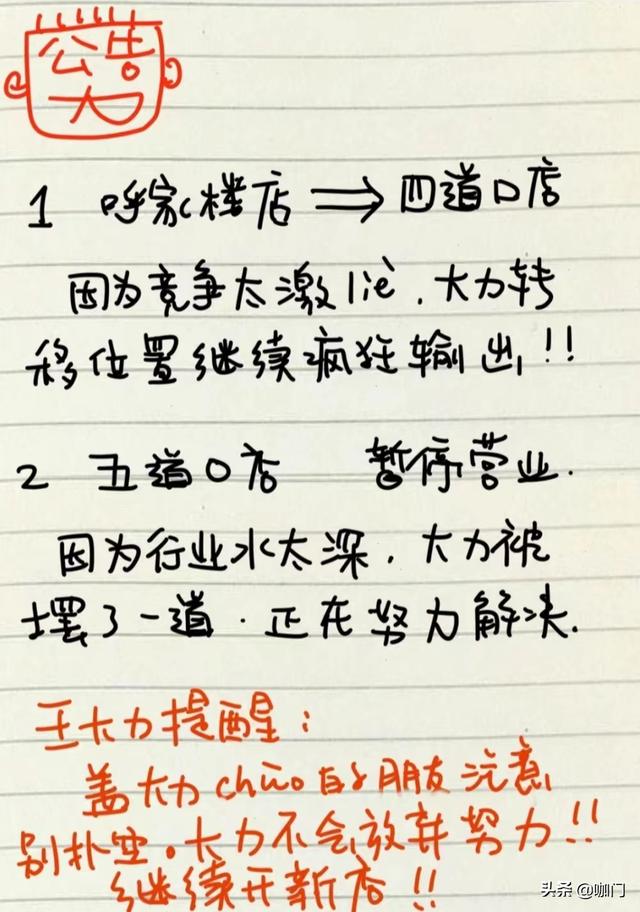 公告
大
1 呼家楼店 ⇒ 四道口店
因为竞争太激liè,大力转
移位置继续疯狂输出!!
2 五道口店 暂停营业.
因为行业水太深,大力被
摆了一道.正在努力解决.
王大力提醒:
盖大力chuō的朋友注意
别扑空。大力不会放弃努力!!
继续开新店!!
头条@咖门